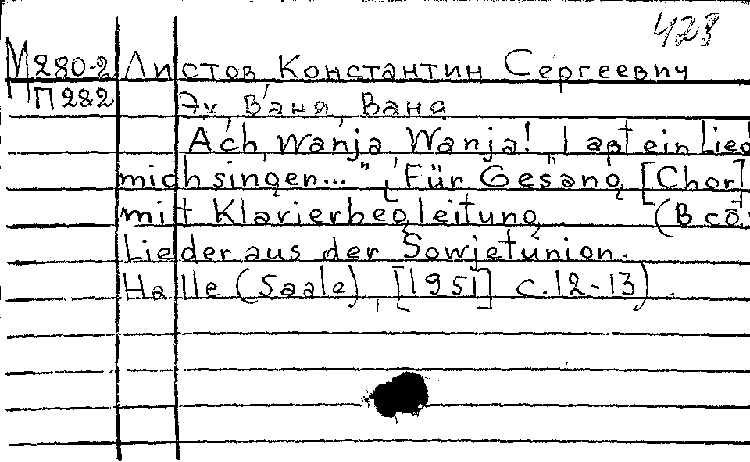 428
М280-2 Листов, Константин Сергеевич
П282 Эх, Ваня, Ваня
Ach, Wanja, Wanja! Laßt ein Lied
mich singen..." Für Gesang [Chor]
mit Klavierbegleitung (В сб.
Lieder aus der Sowjetunion.
Halle (Saale), [1951] с.12-13)